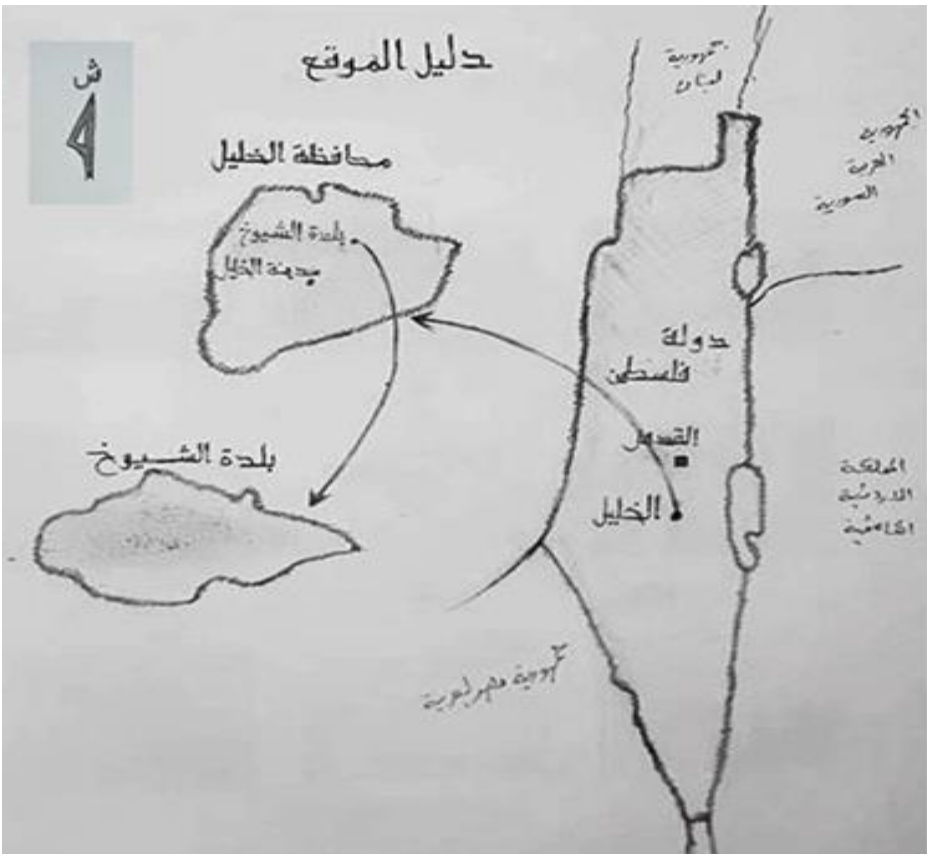 دليل الموقع
ش
جمهورية
لبنان
الجمهورية
العربية
السورية
محافظة الخليل
بلدة الشيوخ
مدينة الخليل
دولة
فلسطين
القدس
الخليل
بلدة الشيوخ
المملكة
الاردنية
الهاشمية
جمهورية مصر العربية